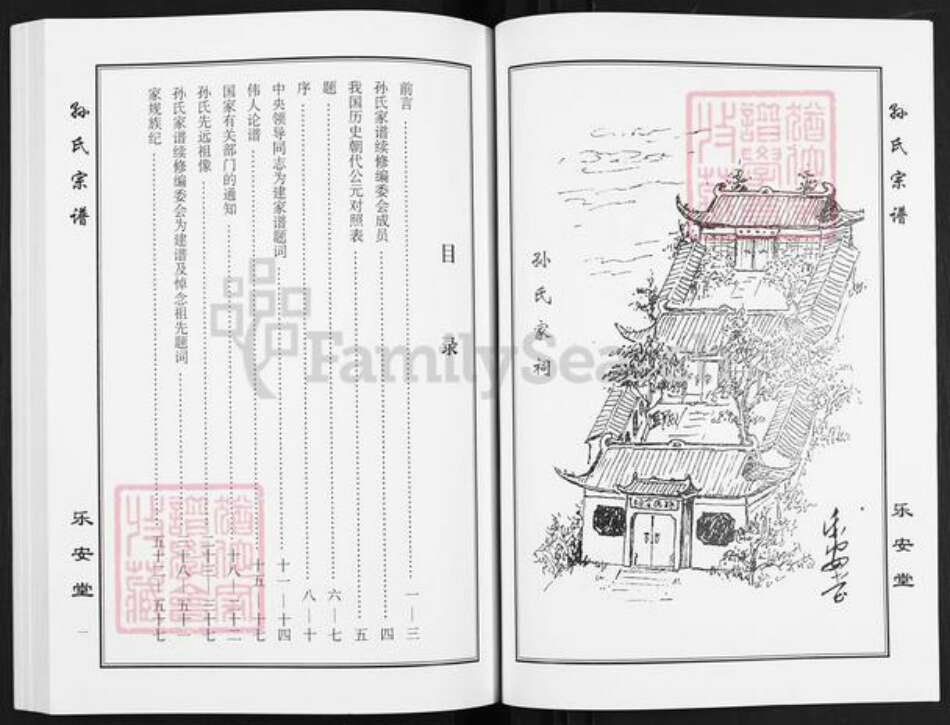 孙氏宗谱
乐安堂
孙氏家祠
乐安堂
孙氏宗谱
乐安堂
一
目录
前言 一—三
孙氏家谱续修编委会成员 四
我国历史朝代公元对照表 五
题 六—七
序 八—十
中央领导同志为建家谱题词 十一—十四
伟人论谱 十五—十七
国家有关部门的通知 十八—
孙氏先远祖像 —三十七
孙氏家谱续修编委会为建谱及悼念祖先题词 三十八—五十一
家规族纪 五十二—五十七
FamilySea